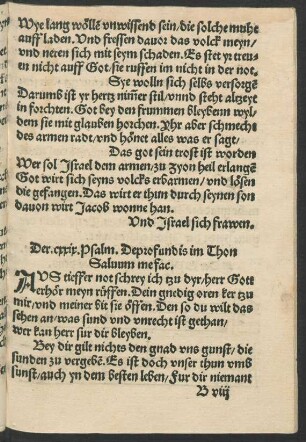 Wye lang wölle vnwissend sein/die solche mühe
auff laden. Vnd fressen dauor das volck meyn/
vnd neren sich mit seym schaden. Es stet yr treu-
en nicht auff Got/sie ruffen im nicht in der not.
Sye wolln sich selbs versorgē
Darumb ist yr hertz nim̄er stil/vnnd steht alzeyt
in forchten. Got bey den frummen bleybenn wyl/
dem sie mit glauben horchen. Yhr aber schmecht
des armen radt/vnd hönet alles was er sagt/
Das got sein trost ist worden
Wer sol Israel dem armen/zu Zyon heil erlangē
Got wirt sich seyns volcks erbarmen/vnd lösen
die gefangen. Das wirt er thun durch seynen son
dauon wirt Jacob wonne han.
Vnd Israel sich frawen.
Der.cxxix.Psalm. Deprofundis im Thon
Saluum me fac.
AVs tieffer not schrey ich zu dyr/herr Gott
erhör meyn rüffen. Dein gnedig oren ker zu
mir/vnd meiner bit sie öffen. Den so du wilt das
sehen an/was sund vnd vnrecht ist gethan/
wer kan herr für dir bleyben.
Bey dir gilt nichts den gnad vns gunst/die
sunden zu vergebē. Es ist doch vnser thun vmb
sunst/auch yn dem besten leben/Fur dir niemant
B viij